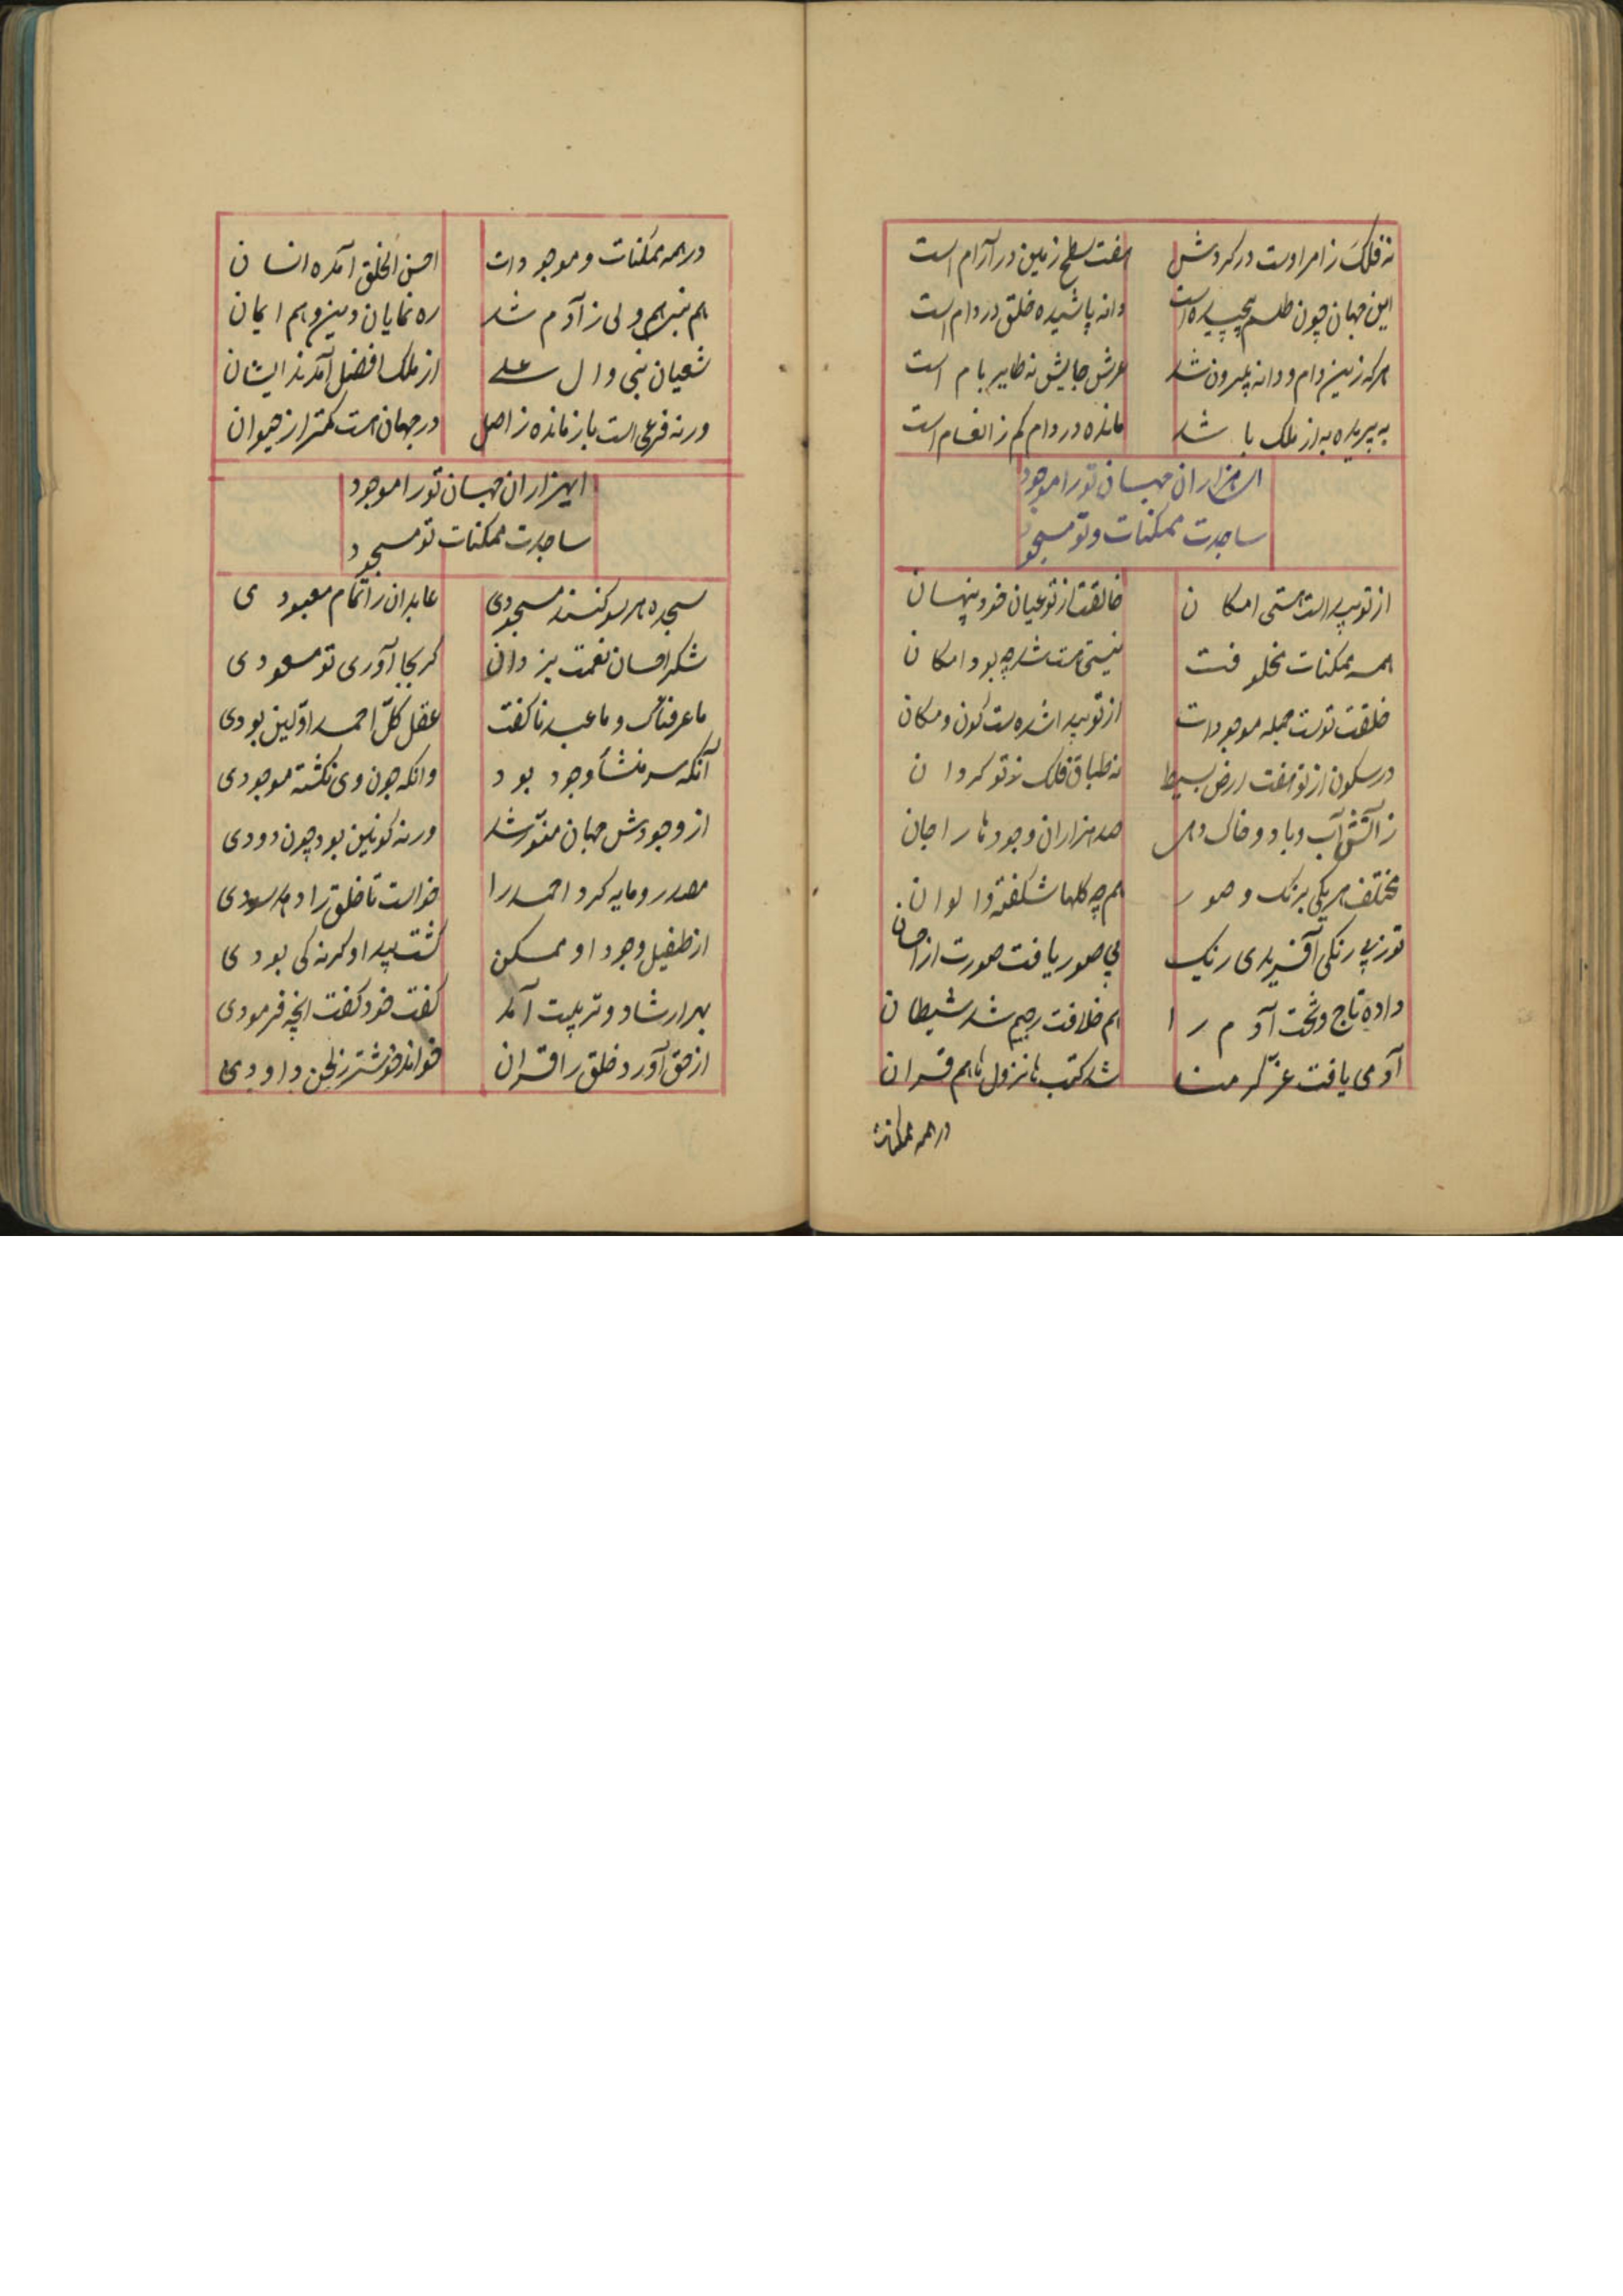 نه فلک ز امر اوست در گردش هفت سطح زمین در آرام است
این جهان چون طلسم پیچیده است دانه پاشیده خلق در دام است
هرکه زین دام و دانه بیرون شد عرش جایش نه طایر بام است
به پریده به از ملک باشد مانده در دام کم ز انعام است
ای هزاران جهان تو را موجود
ساجدت ممکنات و تو مسجود
از تو پیداست هستی امکان خالقت از تو عیان خود پنهان
همه ممکنات مخلوقت نیستی هست شد چه بود امکان
خلقت توست جمله موجودات از تو پیدا شده ست کون و مکان
در سکون از تو هفت ارض بسیط نه طباق فلک ز تو گردان
ز آتش آب و باد و خاک دهی صد هزاران وجودها را جان
مختلف هر یکی برنگ و صور هم چه گلها شکفته و الوان
تو ز بی رنگی آفریدی رنگ بی صور یافت صورت از احسان
داده تاج و تخت آدم را هم خلافت رجیم شد شیطان
آدمی یافت عز کرمنا شد کتب ها نزول ها هم قران
در همه ممکنات
در همه ممکنات و موجودات احسن الخلق آمده انسان
هم نبی هم ولی ز آدم شد ره نمایان دین و هم ایمان
شعیان نبی و ال علی از ملک افضل آمدند ایشان
ورنه فرعی است باز مانده ز اصل در جهان هست کمتر از حیوان
ایهزاران جهان تو را موجود
ساجدت ممکنات تو مسجود
سجده هر سو کنند مسجودی عابدان را تمام معبودی
شکر احسان نعمت یزدان گر بجا آوری تو مسعودی
ما عرفناک و ما عبدنا گفت عقل کلّ احمد اوّلین بودی
آنکه سر منشأ وجود بود وانکه چون وی نگشته موجودی
از وجودش جهان منوّر شد ورنه کونین بود چون دودی
مصدر و مایه کرد احمد را خواست تا خلق را دهد سودی
از طفیل وجود او ممکن گشت پیدا و گرنه کی بودی
بهر ارشاد و تربیت آمد گفت خود گفت انچه فرمودی
از حق آورد خلق را قران خواند خوشتر ز لحن داودی